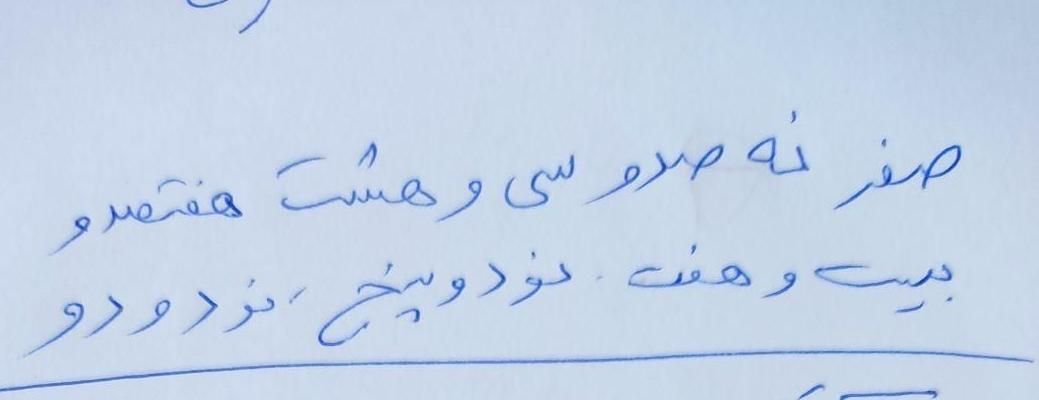 صفر نه صدو سی و هشت هفتصدو
بیست و هفت . نود و پنج ، نود و دو